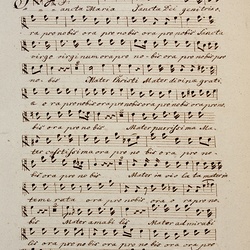 ancta Maria Sancta Dei genitrix,
ra pro nobis ora pro nobis ora pro nobis Sancta
virgo virginum ora pro nobis ora pro nobis
bis. Mater Christi Mater divinæ grati
æ ora pro nobis ora pro nobis ora pro nobis ora pro no
bis ora pro nobis Mater purissima Ma
ter castissima ora pro nobis ora pro nobis ora
pro nobis Mater inviolata mater in
temerata ora pro nobis ora pro no
bis Mater amabilis Mater admirabi